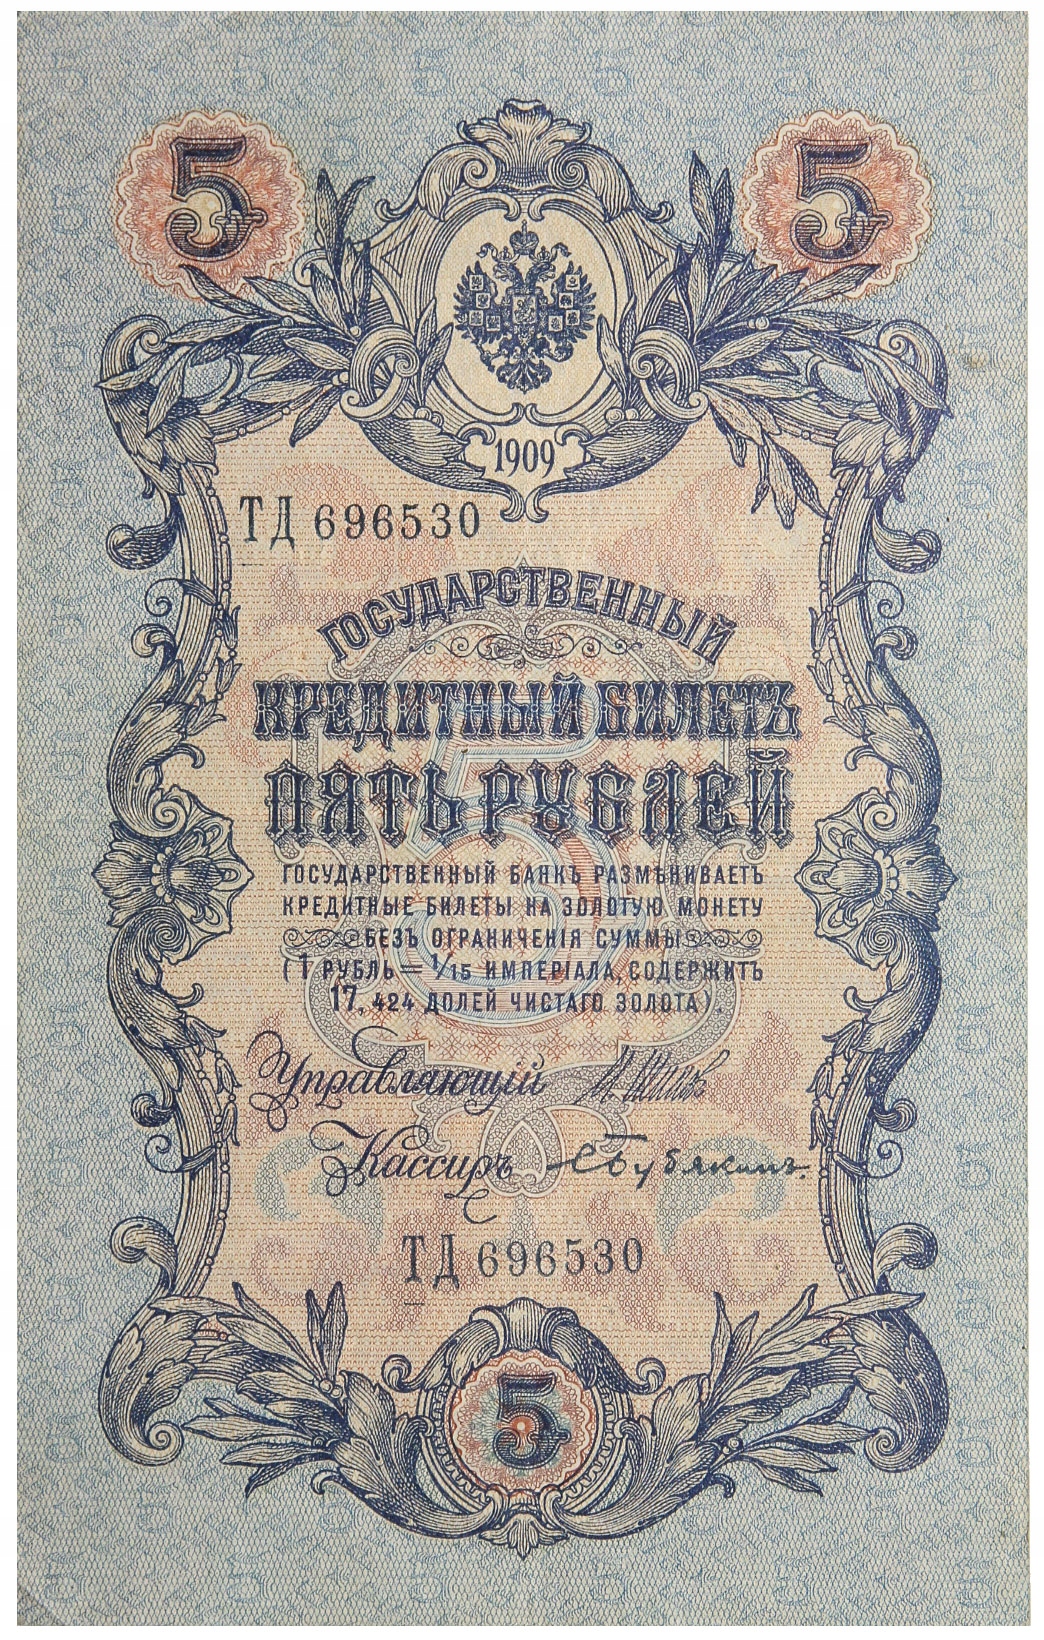 5 5
1909
ТД 696530
ГОСУДАРСТВЕННЫЙ
КРЕДИТНЫЙ БИЛЕТЪ
ПЯТЬ РУБЛЕЙ
ГОСУДАРСТВЕННЫЙ БАНКЪ РАЗМѢНИВАЕТЪ
КРЕДИТНЫЕ БИЛЕТЫ НА ЗОЛОТУЮ МОНЕТУ
БЕЗЪ ОГРАНИЧЕНІЯ СУММЫ
(1 РУБЛЬ = 1/15 ИМПЕРІАЛА, СОДЕРЖИТЪ
17, 424 ДОЛЕЙ ЧИСТАГО ЗОЛОТА).
Управляющій
Кассиръ
ТД 696530
5